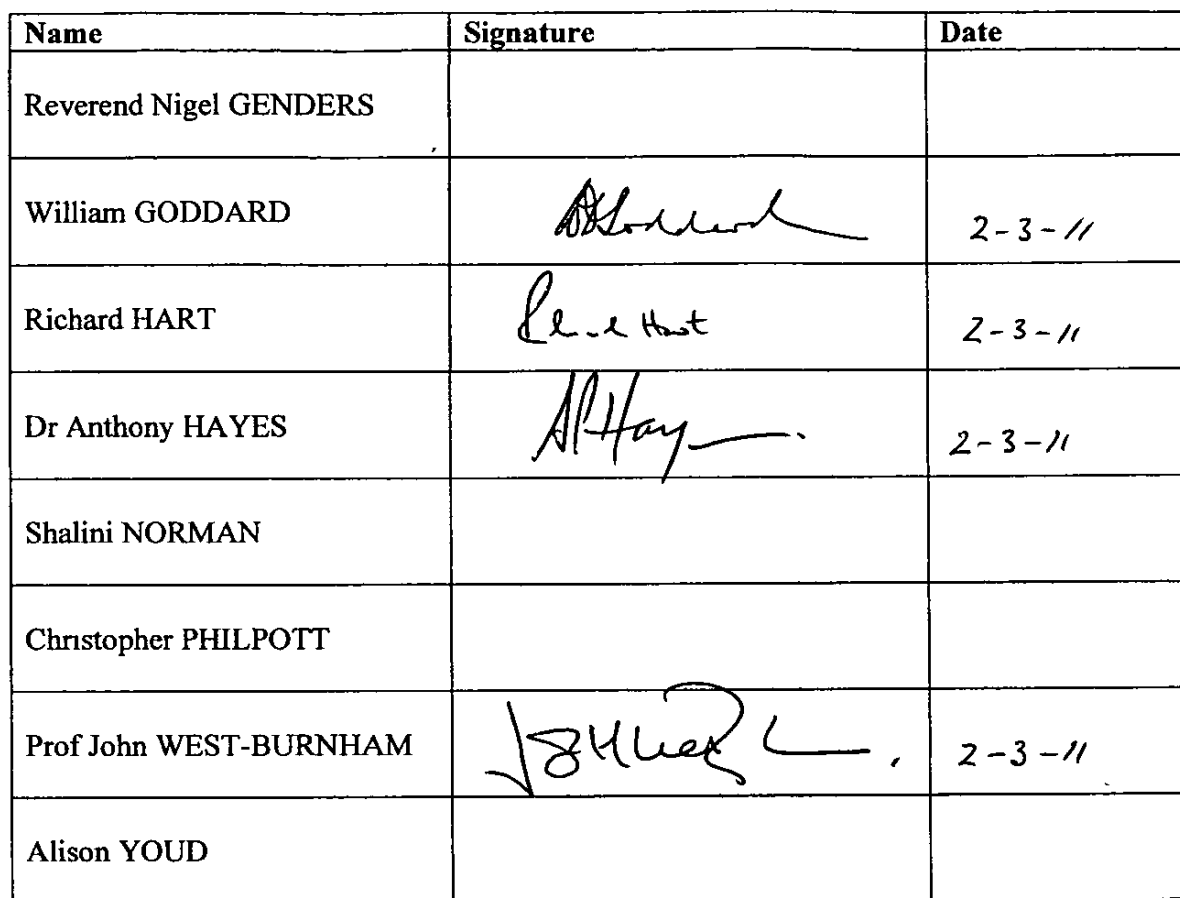 Name Signature Date
Reverend Nigel GENDERS
William GODDARD Goddard 2-3-11
Richard HART Hart 2-3-11
Dr Anthony HAYES APHay 2-3-11
Shalini NORMAN
Christopher PHILPOTT
Prof John WEST-BURNHAM 2-3-11
Alison YOUD